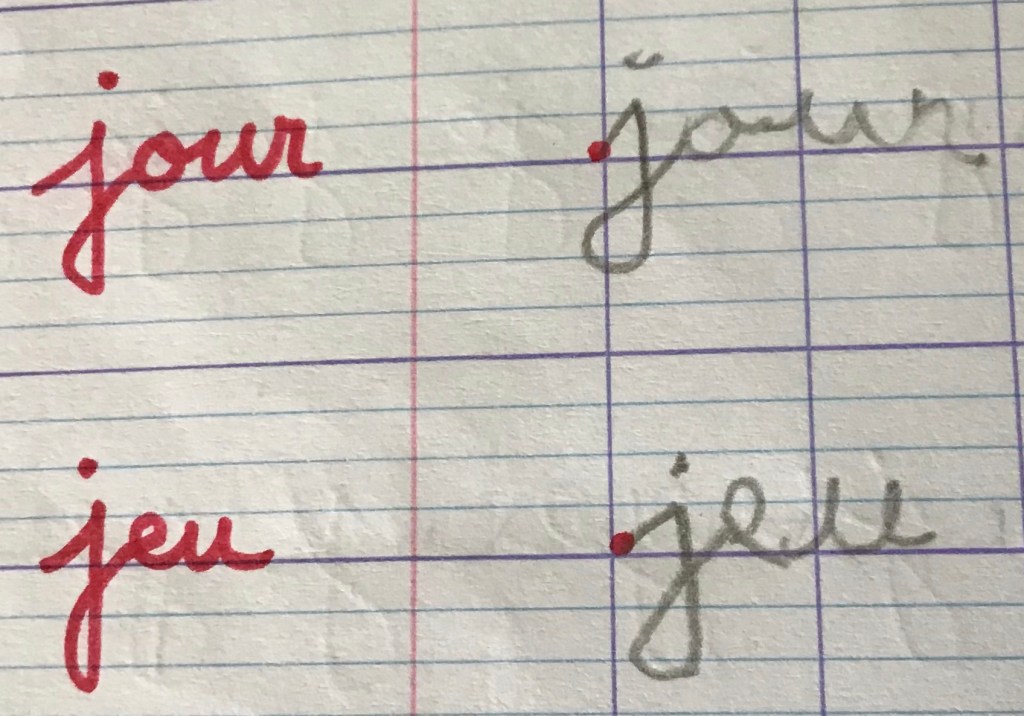 jour jour
jeu jeu